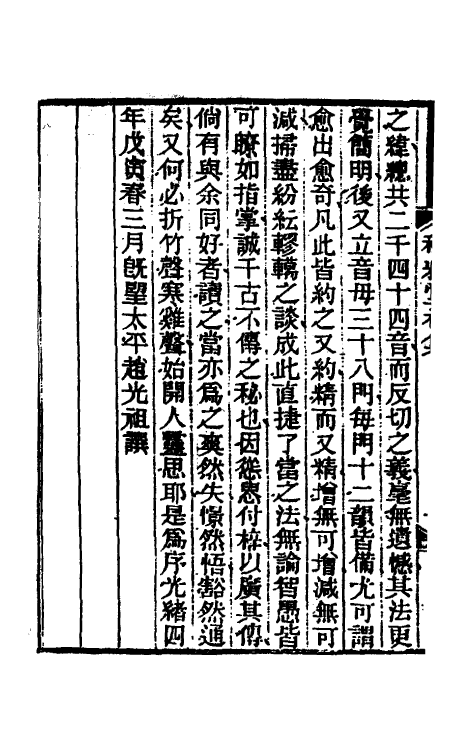 之緯總共二千四十四音而反切之義毫無遺憾其法更
覺簡明後又立音母三十八門每門十二韻皆備尤可謂
愈出愈奇凡此皆約之又約精而又精增無可增減無可
減掃盡紛紜轇轕之談成此直捷了當之法無論智愚皆
可瞭如指掌誠千古不傳之秘也因慫恿付梓以廣其傳
倘有與余同好者讀之當亦爲之爽然失憬然悟豁然通
矣又何必折竹聲寒雞聲始開人靈思耶是爲序光緒四
年戊寅春三月既望太平趙光祖譔